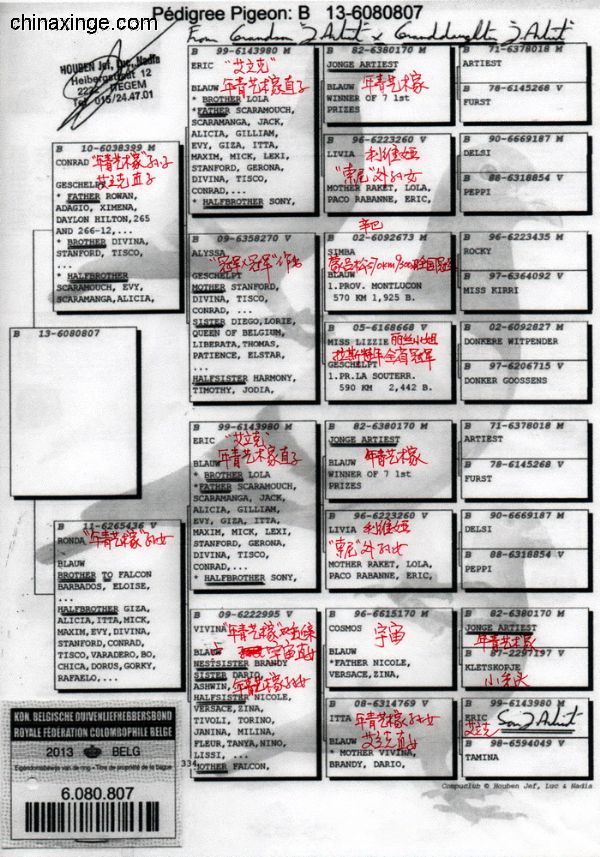 chinaxinge.com
Pédigree Pigeon: B 13-6080807
From Grandson "J Artist" x Granddaughter "J Artist"
HOUBEN Jef, Luc, Nadia
Heibergstraat 12
2222 ITEGEM
Tel 015/24.47.01
B 10-6038399 M
CONRAD "年青艺术家"孙子
艾立克直子
GESCHELPT
* FATHER ROWAN,
ADAGIO, XIMENA,
DAYLON HILTON,265
AND 266-12,...
* BROTHER DIVINA,
STANFORD, TISCO,
...
* HALFBROTHER
SCARAMOUCH, EVY,
SCARAMANGA,ALICIA,
B 13-6080807
B 11-6265436 V
RONDA "年青艺术家"孙女
BLAUW
BROTHER TO FALCON
BARBADOS, ELOISE,
...
HALFBROTHER GIZA,
ALICIA,ITTA,MICK,
MAXIM,EVY,DIVINA,
STANFORD,CONRAD,
TISCO,VARADERO,BO,
CHICA,DORUS,GORKY,
RAFAELO,...
B 99-6143980 M
ERIC "艾立克"
BLAUW 年青艺术家直子
* BROTHER LOLA
*FATHER SCARAMOUCH,
SCARAMANGA, JACK,
ALICIA, GILLIAM,
EVY, GIZA, ITTA,
MAXIM, MICK, LEXI,
STANFORD, GERONA,
DIVINA, TISCO,
CONRAD,...
* HALFBROTHER SONY,
B 09-6358270 V
ALYSSA
"冠军x冠军"作出
GESCHELPT
MOTHER STANFORD,
DIVINA, TISCO,
CONRAD, ...
SISTER DIEGO,LORIE,
QUEEN OF BELGIUM,
LIBERATA,THOMAS,
PATIENCE, ELSTAR,
...
HALFSISTER HARMONY,
TIMOTHY, JODIA,
B 99-6143980 M
ERIC "艾立克"
BLAUW 年青艺术家直子
* BROTHER LOLA
*FATHER SCARAMOUCH,
SCARAMANGA, JACK,
ALICIA, GILLIAM,
EVY, GIZA, ITTA,
MAXIM, MICK, LEXI,
STANFORD, GERONA,
DIVINA, TISCO,
CONRAD,...
* HALFBROTHER SONY,
B 09-6222995 V
VIVINA "年青艺术家"
BLAUW 宇宙直女
NESTSISTER BRANDY
SISTER DARIO,
ASHWIN, 年青艺术家孙女
HALFSISTER NICOLE,
VERSACE,ZINA,
TIVOLI, TORINO,
JANINA, MILINA,
FLEUR,TANYA,NINO,
LISSI, ...
MOTHER FALCON,
334
B 82-6380170 M
JONGE ARTIEST
BLAUW 年青艺术家
WINNER OF 7 1st
PRIZES
B 96-6223260 V
LIVIA 利维娅
"索尼"外孙女
MOTHER RAKET, LOLA,
PACO RABANNE, ERIC,
辛巴
B 02-6092673 M
SIMBA
BLAUW
1.PROV. MONTLUCON
570 KM 1,925 B.
B 05-6168668 V
MISS LIZZIE 丽丝小姐
拉斯特年全省冠军
GESCHELPT
1.PR.LA SOUTERR.
590 KM 2,442 B.
B 82-6380170 M
JONGE ARTIEST
BLAUW 年青艺术家
WINNER OF 7 1st
PRIZES
B 96-6223260 V
LIVIA 利维娅
"索尼"外孙女
MOTHER RAKET, LOLA,
PACO RABANNE, ERIC,
B 96-6615170 M
COSMOS 宇宙
BLAUW
*FATHER NICOLE,
VERSACE,ZINA,
B 08-6314769 V
ITTA 年青艺术家孙女
艾立克直女
BLAUW
* MOTHER VIVINA,
BRANDY, DARIO,
B 71-6378018 M
ARTIEST
B 78-6145268 V
FURST
B 90-6669187 M
DELSI
B 88-6318854 V
PEPPI
B 96-6223435 M
ROCKY
B 97-6364092 V
MISS KIRRI
B 02-6092827 M
DONKERE WITPENDER
B 97-6206715 V
DONKER GOOSSENS
B 71-6378018 M
ARTIEST
B 78-6145268 V
FURST
B 90-6669187 M
DELSI
B 88-6318854 V
PEPPI
B 82-6380170 M
JONGE ARTIEST
年青艺术家
B 87-2297197 V
KLETSKOPJE
小光头
B 99-6143980 M
ERIC Son "J Artist"
艾立克
B 98-6594049 V
TAMINA
Compuclub © Houben Jef, Luc & Nadia
KON. BELGISCHE DUIVENLIEFHEBBERSBOND
ROYALE FÉDÉRATION COLOMBOPHILE BELGE
2013 BELG
Eigendomsbewijs van de ring - Titre de propriété de la bague
6.080.807